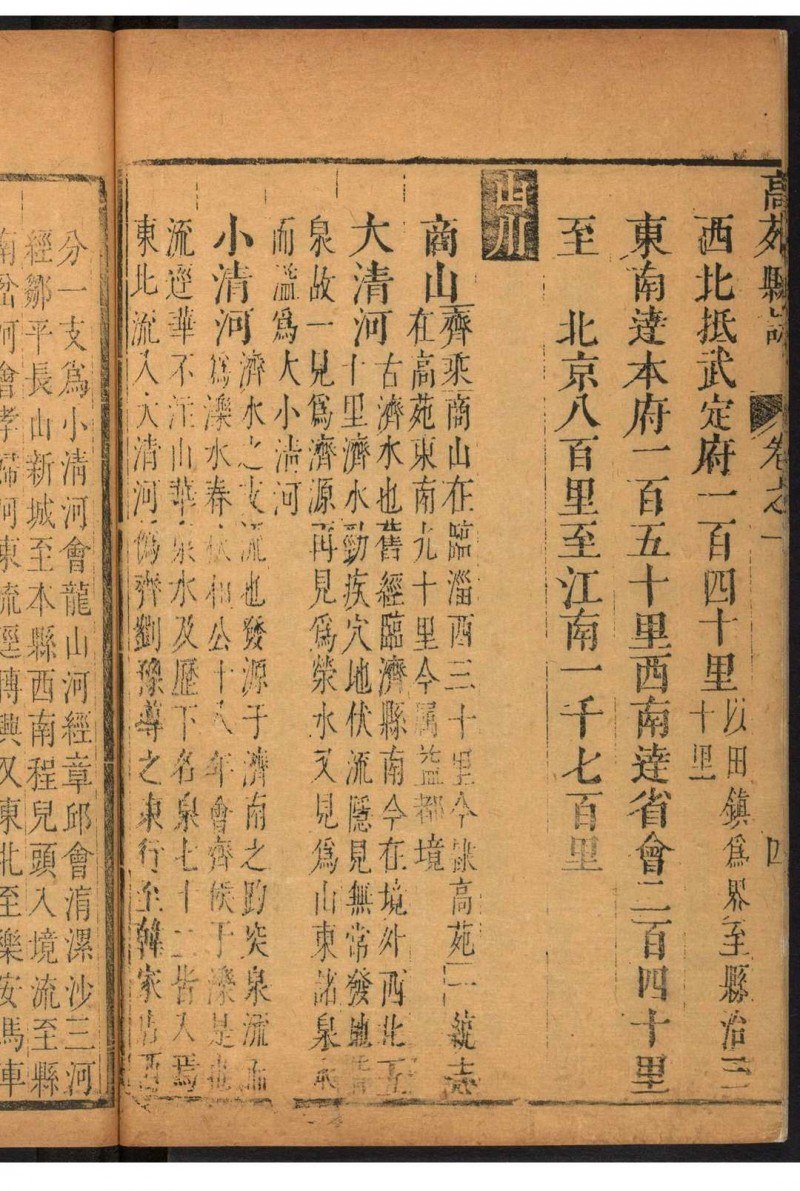 高苑縣誌 卷之一 四
西北抵武定府一百四十里以田鎮爲界至縣治三
十里
東南達本府一百五十里西南達省會二百四十里
至 北京八百里至江南一千七百里
山川
商山齊乘商山在臨淄西三十里今隸高苑一統志
在高苑東南九十里今屬益都境
大清河古濟水也舊經臨濟縣南今在境外西北五
十里濟水勁疾穴地伏流隱見無常發地皆
泉故一見爲濟源再見爲滎水又見爲山東諸泉
而溢爲大小清河
小清河濟水之支流也發源于濟南之趵突泉流
爲濼水春秋桓公十八年會齊侯于濼是也
流逕華不注山華泉水及歷下名泉七十二皆入焉
東北流入大清河僞齊劉豫導之東行至韓家店
分一支爲小清河會龍山河經章邱會淯漯沙三河
經鄒平長山新城至本縣西南程兒頭入境流至縣
南岔河會孝婦河東流逕博興又東北至樂安馬車